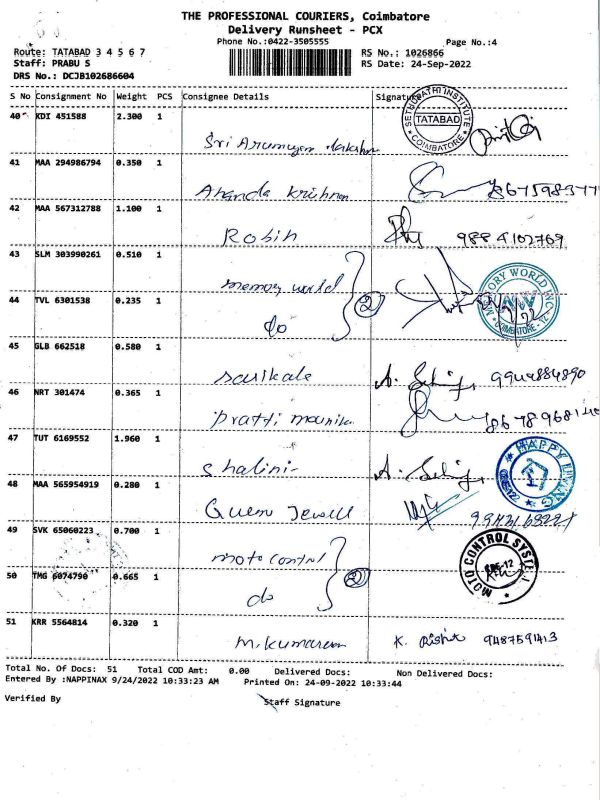 THE PROFESSIONAL COURIERS, Coimbatore
Delivery Runsheet - PCX
Phone No.:0422-3505555 Page No.:4
Route: TATABAD 3 4 5 6 7 RS No.: 1026866
Staff: PRABU S RS Date: 24-Sep-2022
DRS No.: DCJB102686604
S No Consignment No Weight PCS Consignee Details Signature
SETHUPATHI INSTITUTE
40 KDI 451588 2.300 1 TATABAD
COIMBATORE
Sri Arumugam
41 MAA 294986794 0.350 1
Ananda Krishnan
42 MAA 567312788 1.100 1
Robin 9884102769
43 SLM 303990261 0.510 1
memory world 2 MEMORY WORLD INC
44 TVL 6301538 0.235 1 MW
do COIMBATORE - 12
45 GLB 662518 0.580 1
sasikala
46 NRT 301474 0.365 1
Pratti mounika
47 TUT 6169552 1.960 1
Shalini HAPPY LIVING
48 MAA 565954919 0.280 1
Queen Jewell
49 SVK 65060223 0.700 1
moto control 2 MOTO CONTROL SYSTEM
50 TMG 6074790 0.665 1 CBE-12
do
51 KRR 5564814 0.320 1
M.Kumaresan K. 9487591413
Total No. Of Docs: 51 Total COD Amt: 0.00 Delivered Docs: Non Delivered Docs:
Entered By :NAPPINAX 9/24/2022 10:33:23 AM Printed On: 24-09-2022 10:33:44
Verified By Staff Signature